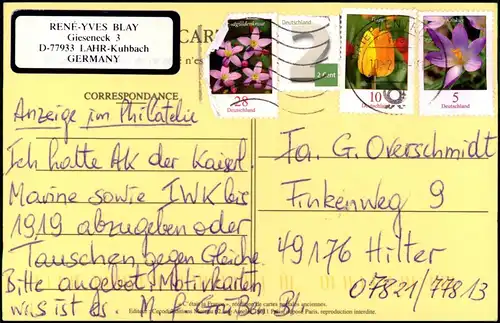 RENÉ-YVES BLAY
Gieseneck 3
D-77933 LAHR-Kuhbach
GERMANY
CARTE
CORRESPONDANCE
28
Deutschland
Deutschland
2
2 Cent
10
Deutschland
5
Deutschland
Anzeige im Philatelie
Ich hatte AK der Kaiserl.
Marine sowie IWK bis
1919 abzugeben oder
Tauschen gegen Gleiche.
Bitte angebot. Motivkarten
was ist es M
Fa. G. Overschmidt
Finkenweg 9
49176 Hilter
07821/77813
C'était la France - réédition de cartes postales anciennes.
reproduction interdite.